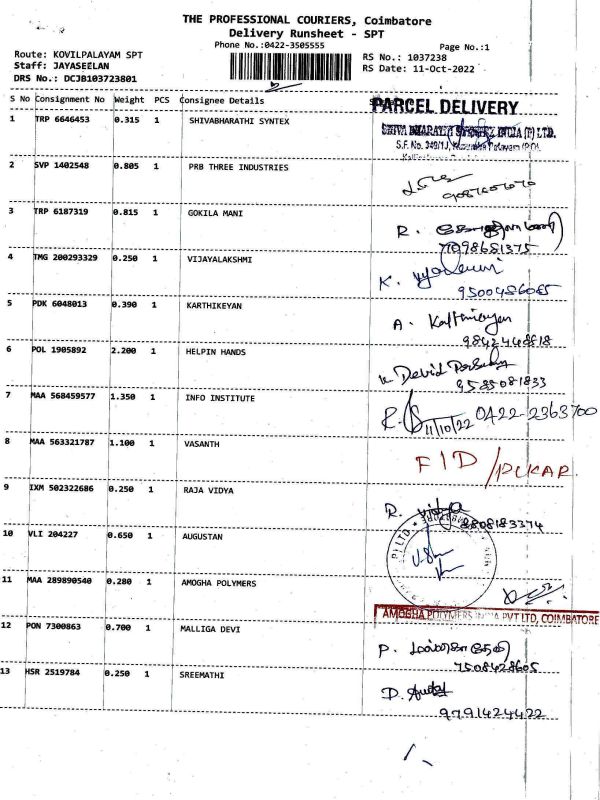 THE PROFESSIONAL COURIERS, Coimbatore
Delivery Runsheet - SPT
Phone No.:0422-3505555
Page No.:1
Route: KOVILPALAYAM SPT
Staff: JAYASEELAN
DRS No.: DCJB103723801
RS No.: 1037238
RS Date: 11-Oct-2022
S No Consignment No Weight PCS Consignee Details
PARCEL DELIVERY
1 TRP 6646453 0.315 1 SHIVABHARATHI SYNTEX
SHIVA BHARATHI INDIA (P) LTD.
S.F. No. 349/1J, Palayam (P.O),
2 SVP 1402548 0.805 1 PRB THREE INDUSTRIES
3 TRP 6187319 0.815 1 GOKILA MANI
R.
7098651375
4 TMG 200293329 0.250 1 VIJAYALAKSHMI
K.
9500486065
5 PDK 6048013 0.390 1 KARTHIKEYAN
A. Karthikeyan
9842448818
6 POL 1905892 2.200 1 HELPIN HANDS
David
9585081833
7 MAA 568459577 1.350 1 INFO INSTITUTE
11/10/22 0422-2363700
8 MAA 563321787 1.100 1 VASANTH
FID/PUKAR
9 IXM 502322686 0.250 1 RAJA VIDYA
R. Vidya
8808183374
10 VLI 204227 0.650 1 AUGUSTAN
11 MAA 289890540 0.280 1 AMOGHA POLYMERS
AMOGHA POLYMERS INDIA PVT LTD, COIMBATORE
12 PON 7300863 0.700 1 MALLIGA DEVI
P. மல்லிகாதேவி
7508428605
13 HSR 2519784 0.250 1 SREEMATHI
D.
9791424422